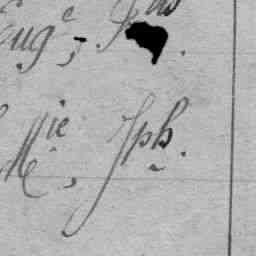 Eug.e,
M.ie, Jph.